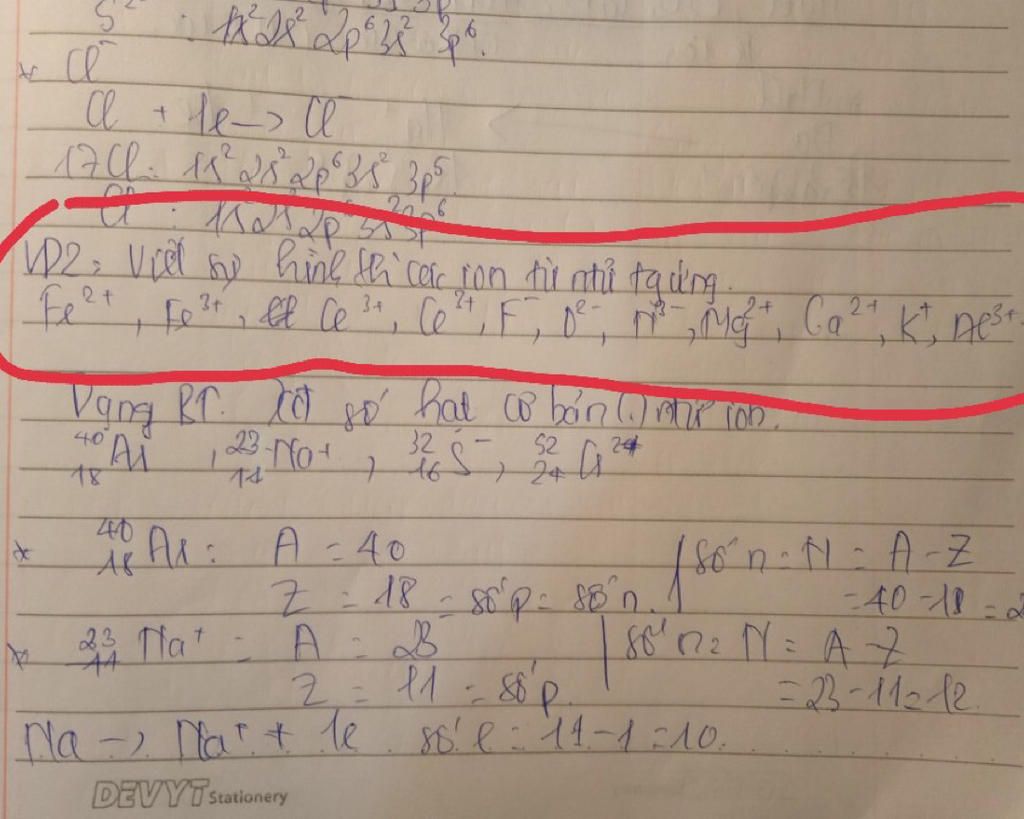 S²⁻ : 1s²2s² 2p⁶3s² 3p⁶.
* Cl⁻
Cl + 1e -> Cl⁻
17Cl: 1s² 2s² 2p⁶3s² 3p⁵
Cl⁻ : 1s²2s²2p⁶3s²3p⁶
VD2: Viết sự hình thành các ion từ nhử tg ứng.
Fe²⁺, Fe³⁺, Ce³⁺, Ce²⁺, F⁻, O²⁻, N³⁻, Mg²⁺, Ca²⁺, K⁺, Al³⁺
Dạng BT. số hạt cơ bản (.) nhử ion.
⁴⁰₁₈Ar, ²³₁₁Na⁺, ³²₁₆S⁻, ⁵²₂₄Cr²⁺
* ⁴⁰₁₈Ar: A = 40 số n = N = A - Z
Z = 18 = số p = số n. = 40 - 18 =
* ²³₁₁Na⁺ = A = 23 số n = N = A - Z
Z = 11 = số p = 23 - 11 = 12.
Na -> Na⁺ + 1e số e = 11 - 1 = 10.
DEVYT Stationery